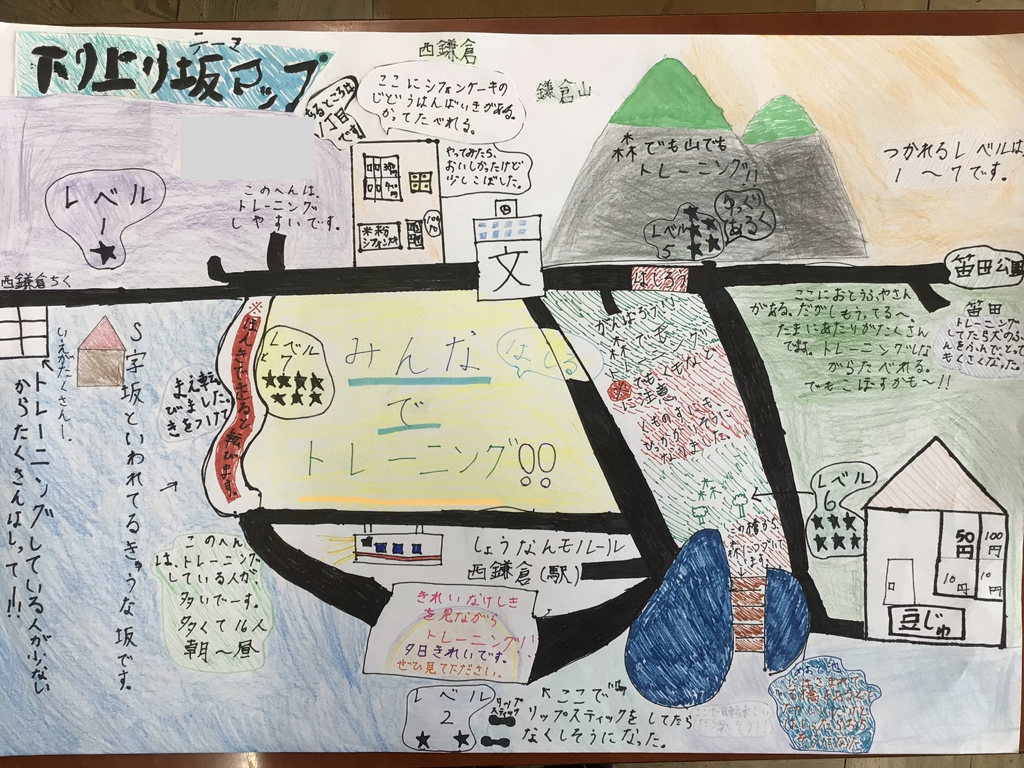 テーマ
下り上り坂マップ
西鎌倉
鎌倉山
あるところは
1丁目
です
ここにシフォンケーキの
じどうはんばいきがある。
かってたべれる。
やってみたら、
おいしかったけど
少しこぼした。
レベル
1
このへんは、
トレーニング
しやすいです。
米粉
シフォンケーキ
文
森でも山でも
トレーニング!!
レベル
5
ゆっくり
あるく
つかれるレベルは
1〜7です。
西鎌倉ちく
笛田公園
はしろう
いえがたくさんー。
S字坂といわれてるきゅうな坂です。
トレーニングしている人が少ない
からたくさんはしって!!!
まえ転
びました。
きをつけて
※ほんきで走ると転びます。
レベル
7
みんな
で
トレーニング!!
はしる
がんばろう
森で
トレーニング
でもくもなど
に注意
くものすにも
ひっかかいそうに
なりました
ここにおとうふやさん
がある。だがしもうってる〜。
たまにあたりがたくさん
です。トレーニングしな
がらたべれる。
でもこぼすかも〜!!
笛田
トレーニング
してたら犬のふ
んをふんでとって
もくさくなった。
レベル
6
50円
100円
10円
10円
豆じゅ
この橋から
森につながって
ます。
しょうなんモノレール
西鎌倉(駅)
きれいなけしき
を見ながら
トレーニング!!
夕日きれいです。
ぜひ見てください。
このへん
は、トレーニング
している人が
多いでーす。
多くて16人
朝〜昼
レベル
2
リップ
スティック
ここで
リップスティックをしてたら
なくしそうになった。